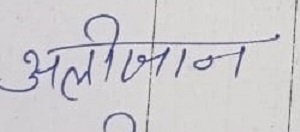 अलीजान